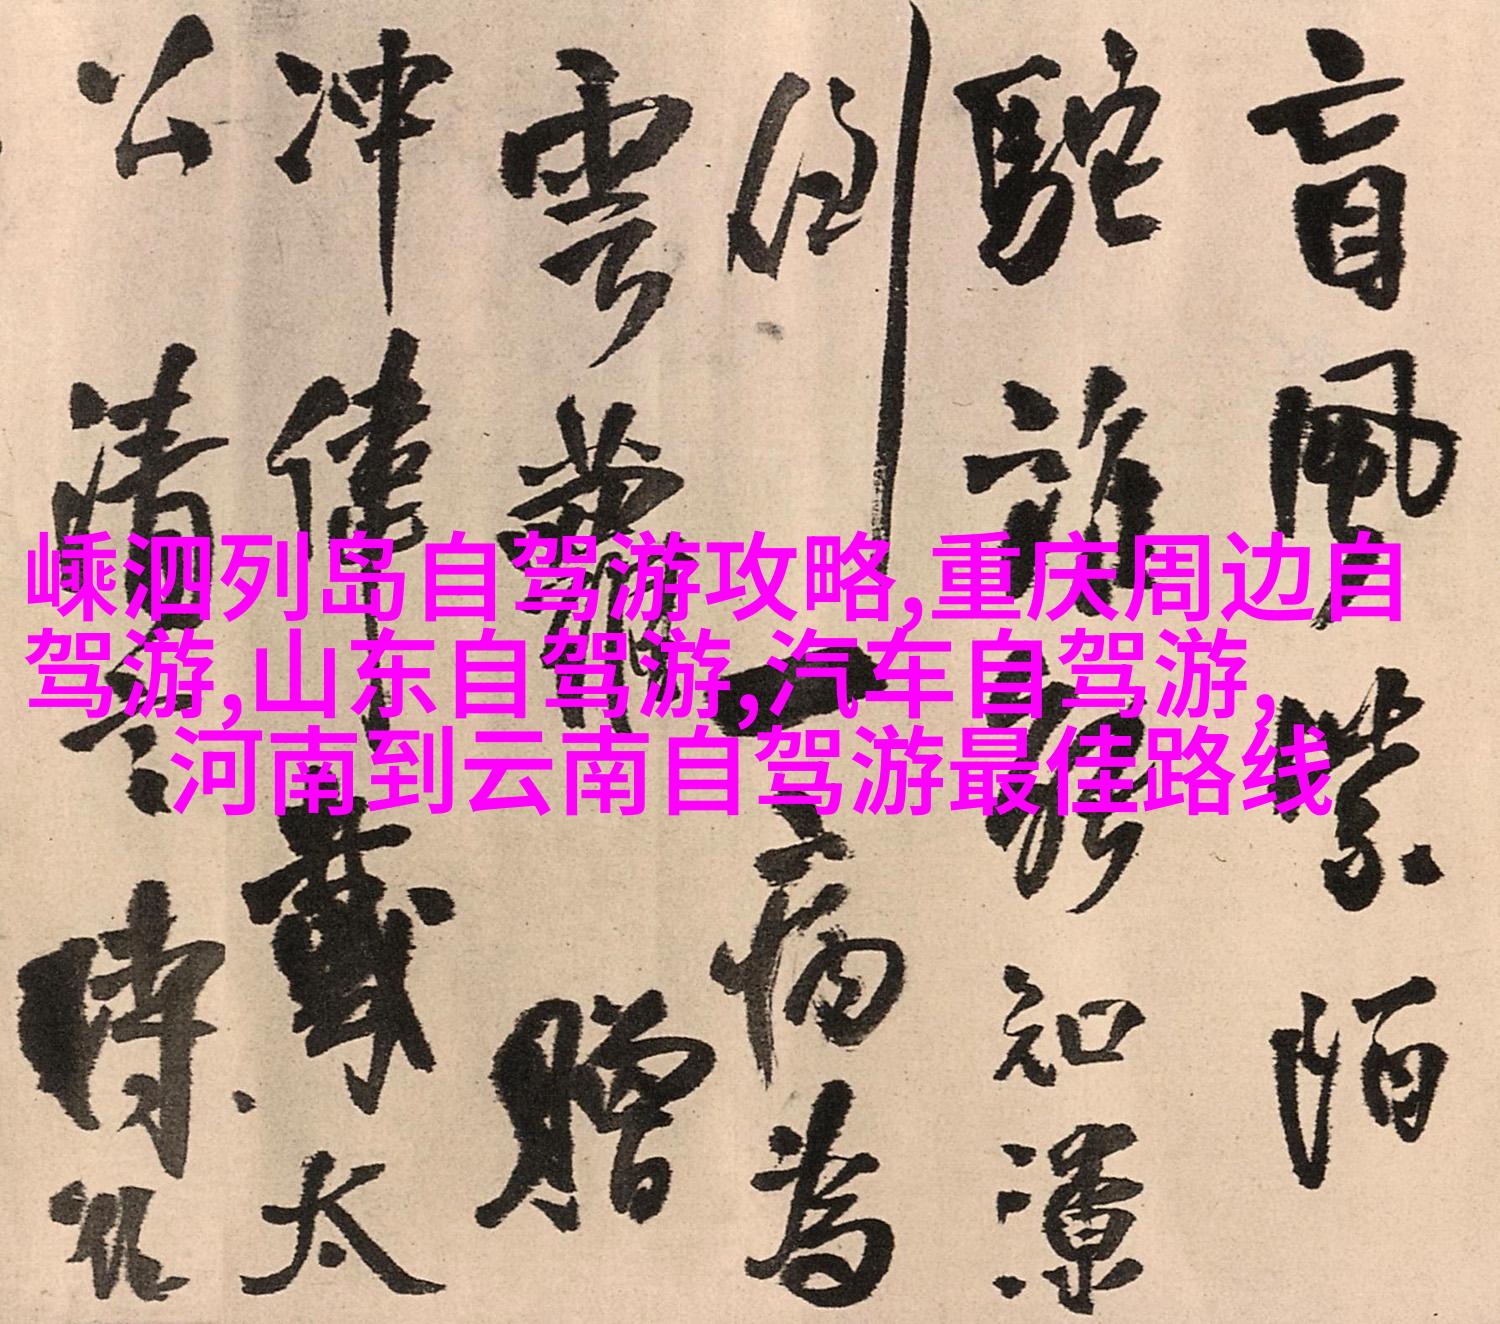 嵊泗列岛自驾游攻略,重庆周边自
驾游,山东自驾游,汽车自驾游,
河南到云南自驾游最佳路线
盲風紫陌
知
一病為
雲贈
冲戴太
公清時